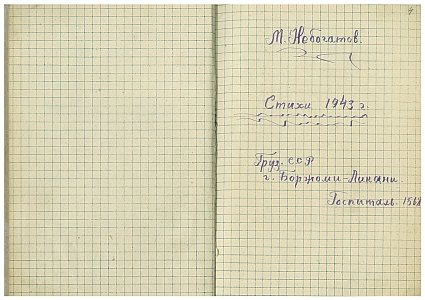 М. Небогатов.
Стихи 1943 г.
Груз. ССР
г. Боржоми-Ликани.
Госпиталь.